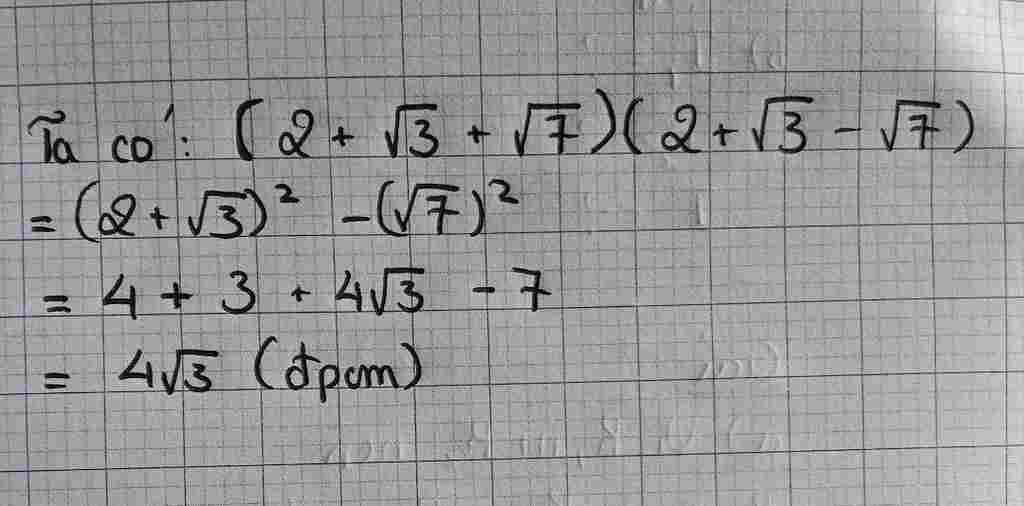 Ta có: (2 + √3 + √7)(2 + √3 - √7)
= (2 + √3)² - (√7)²
= 4 + 3 + 4√3 - 7
= 4√3 (đpcm)